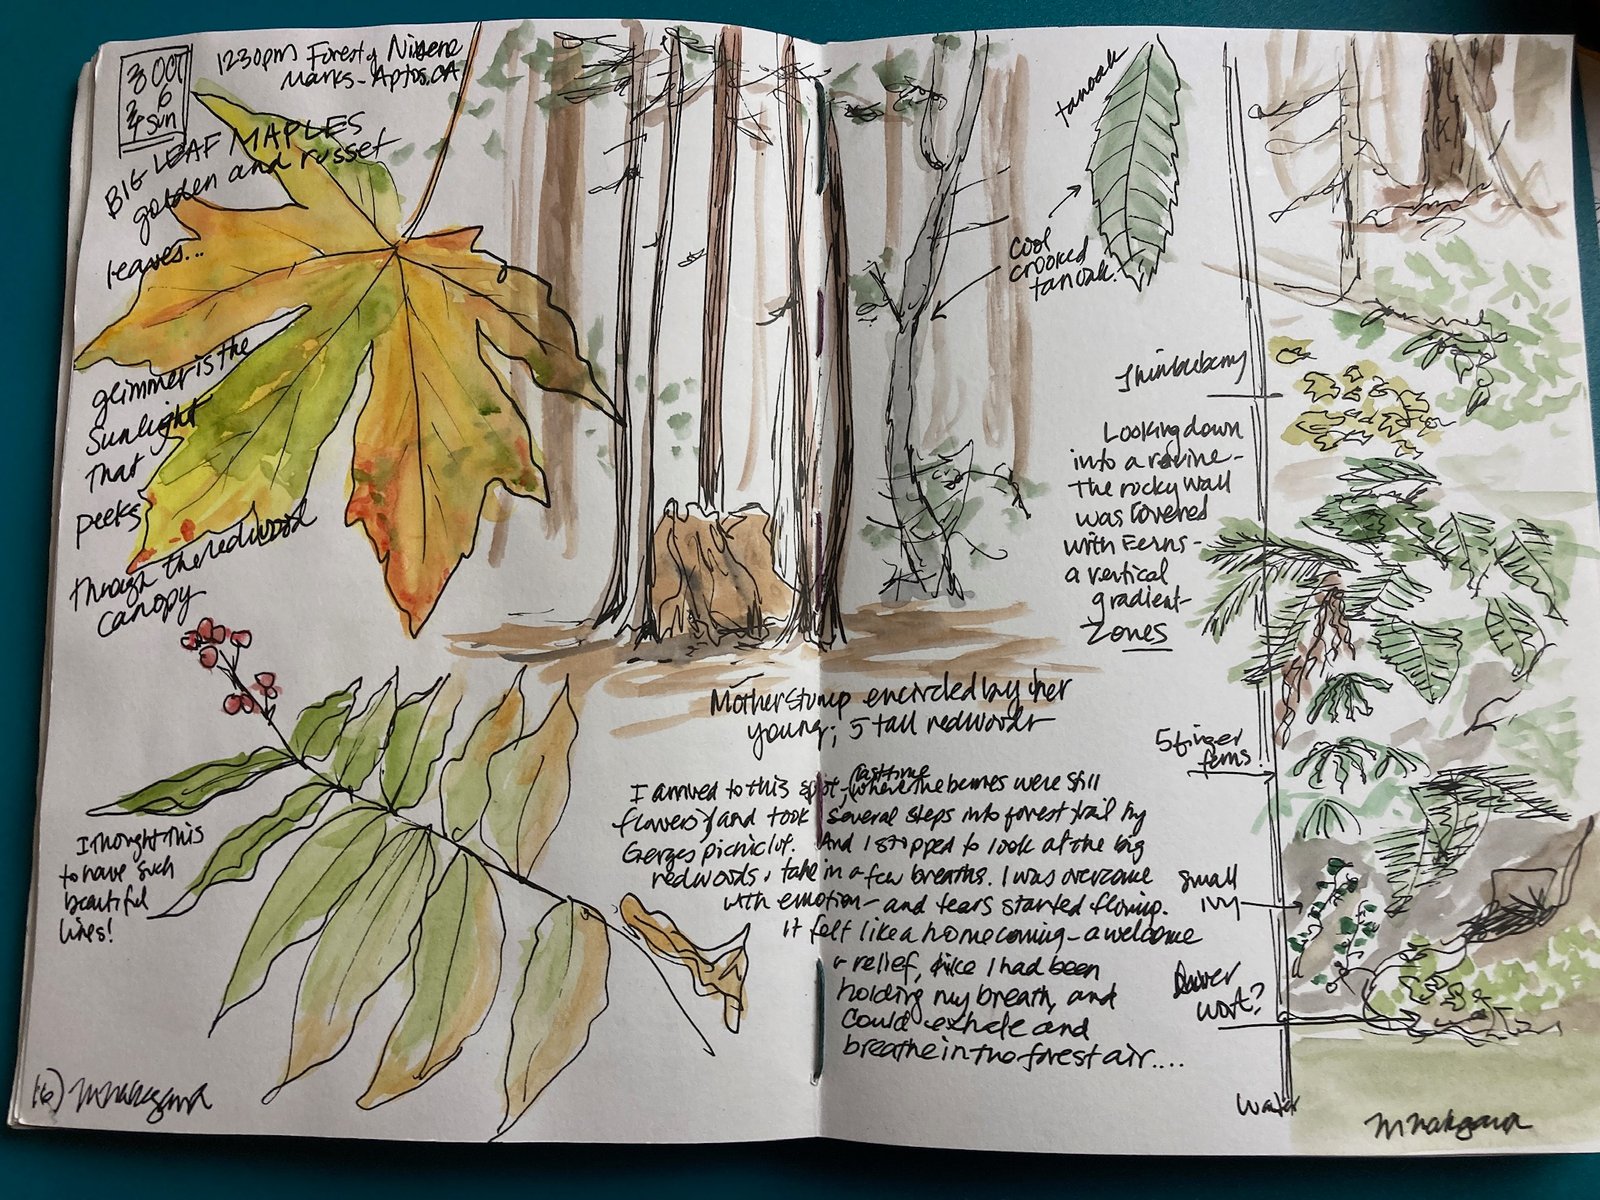 3 Oct
6
24 Sun
1230pm Forest of Nisene
Marks - Aptos. CA
BIG LEAF MAPLES
golden and russet
leaves...
glimmer is the
Sunlight
That
peeks
through the redwood
canopy
I thought this
to have such
beautiful
lines!
16) MNakagawa
Mother stump encircled by her
young; 5 tall redwoods
I arrived to this spot, (last time where the berries were still
flowers) and took several steps into forest trail by
Georges picnic lot. And I stopped to look at the big
redwoods, take in a few breaths. I was overcome
with emotion - and tears started flowing.
It felt like a homecoming - a welcome
relief, like I had been
holding my breath, and
could exhale and
breathe in the forest air....
tanoak
cool
crooked
tanoak.
Thimbleberry
Looking down
into a ravine -
The rocky wall
was covered
with Ferns -
a vertical
gradient -
Zones
5 finger
ferns
Small
Ivy
wort?
Water
MNakagawa